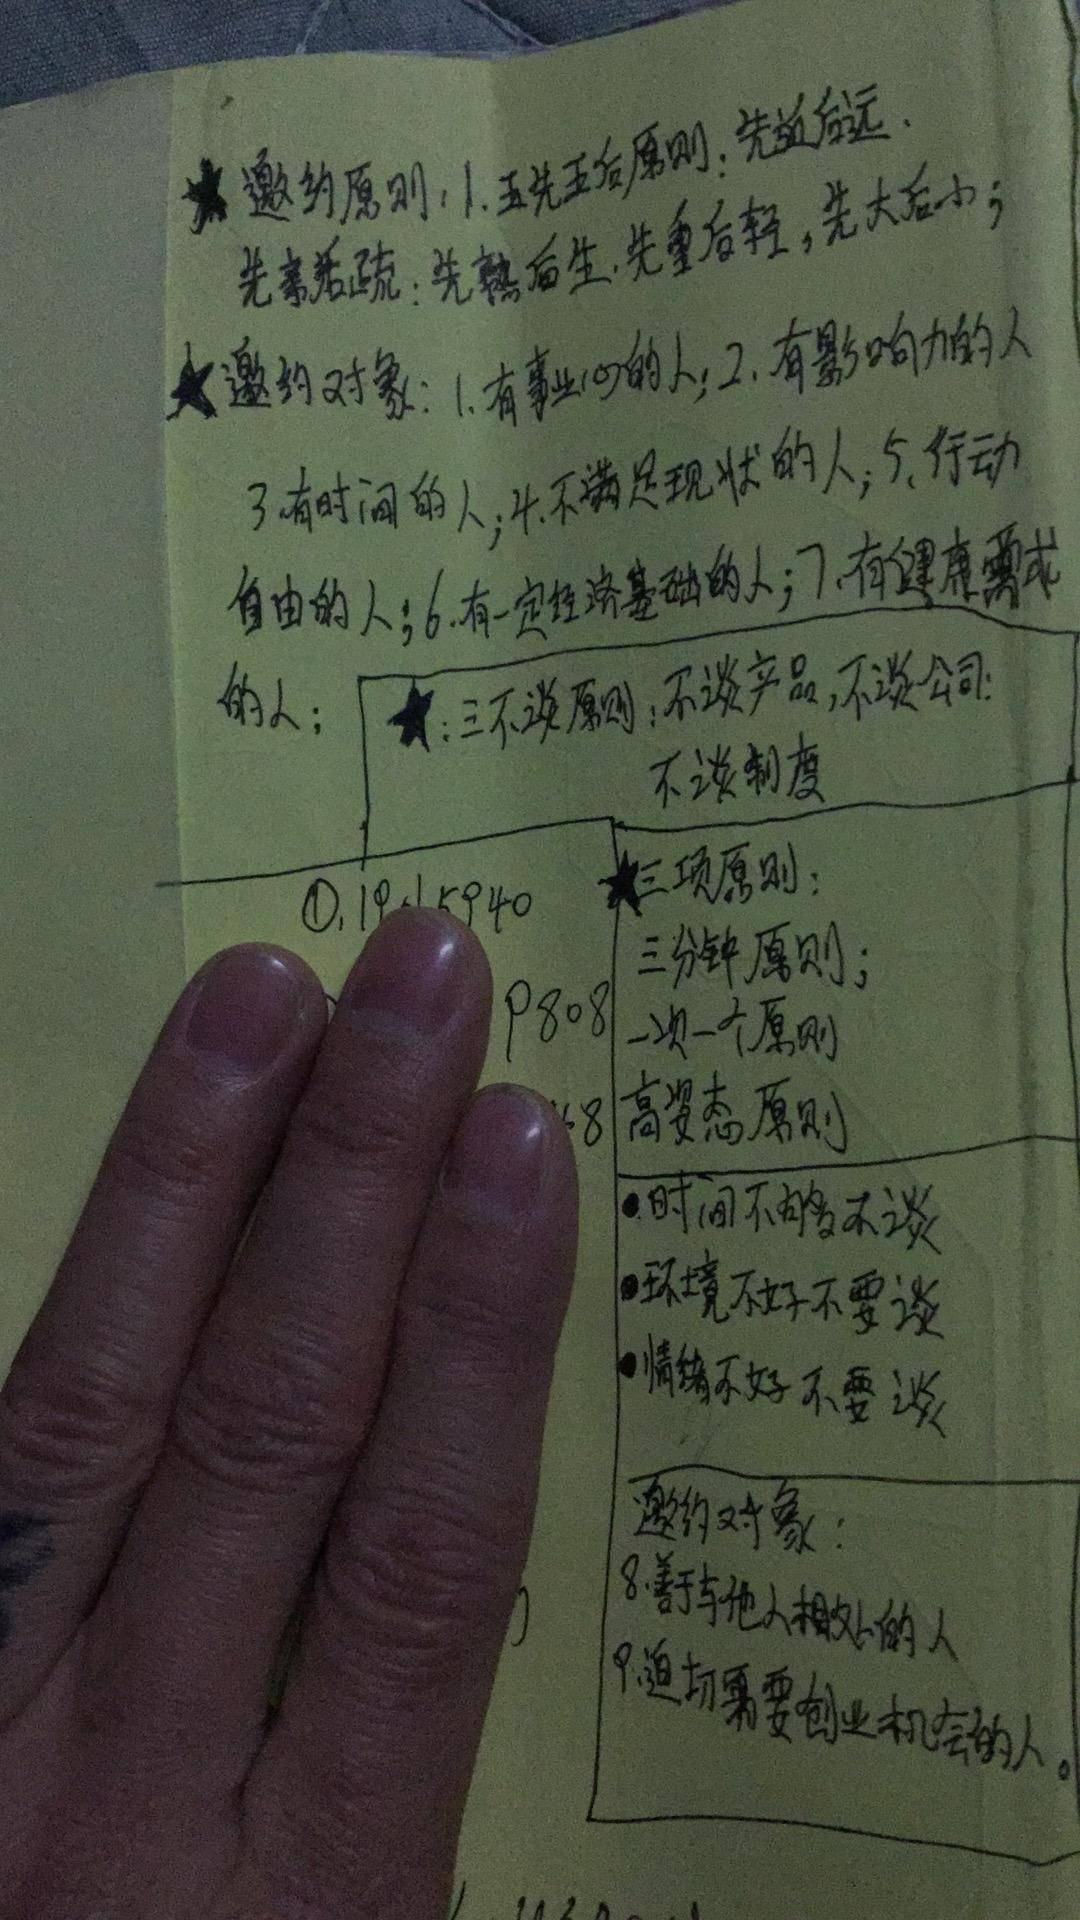 ★邀约原则:1.五先五后原则:先近后远.
先亲后疏:先熟后生.先重后轻;先大后小;
★邀约对象:1.有事业心的人;2.有影响力的人
3.有时间的人;4.不满足现状的人;5.行动
自由的人;6.有一定经济基础的人;7.有健康需求
的人;
★:三不谈原则:不谈产品,不谈公司:
不谈制度
①.19 5940
P808
68
★三项原则:
三分钟原则;
一次一个原则
高姿态原则
•时间不够不谈
•环境不好不要谈
•情绪不好不要谈
邀约对象:
8.善于与他人相处的人
9.迫切需要创业机会的人。